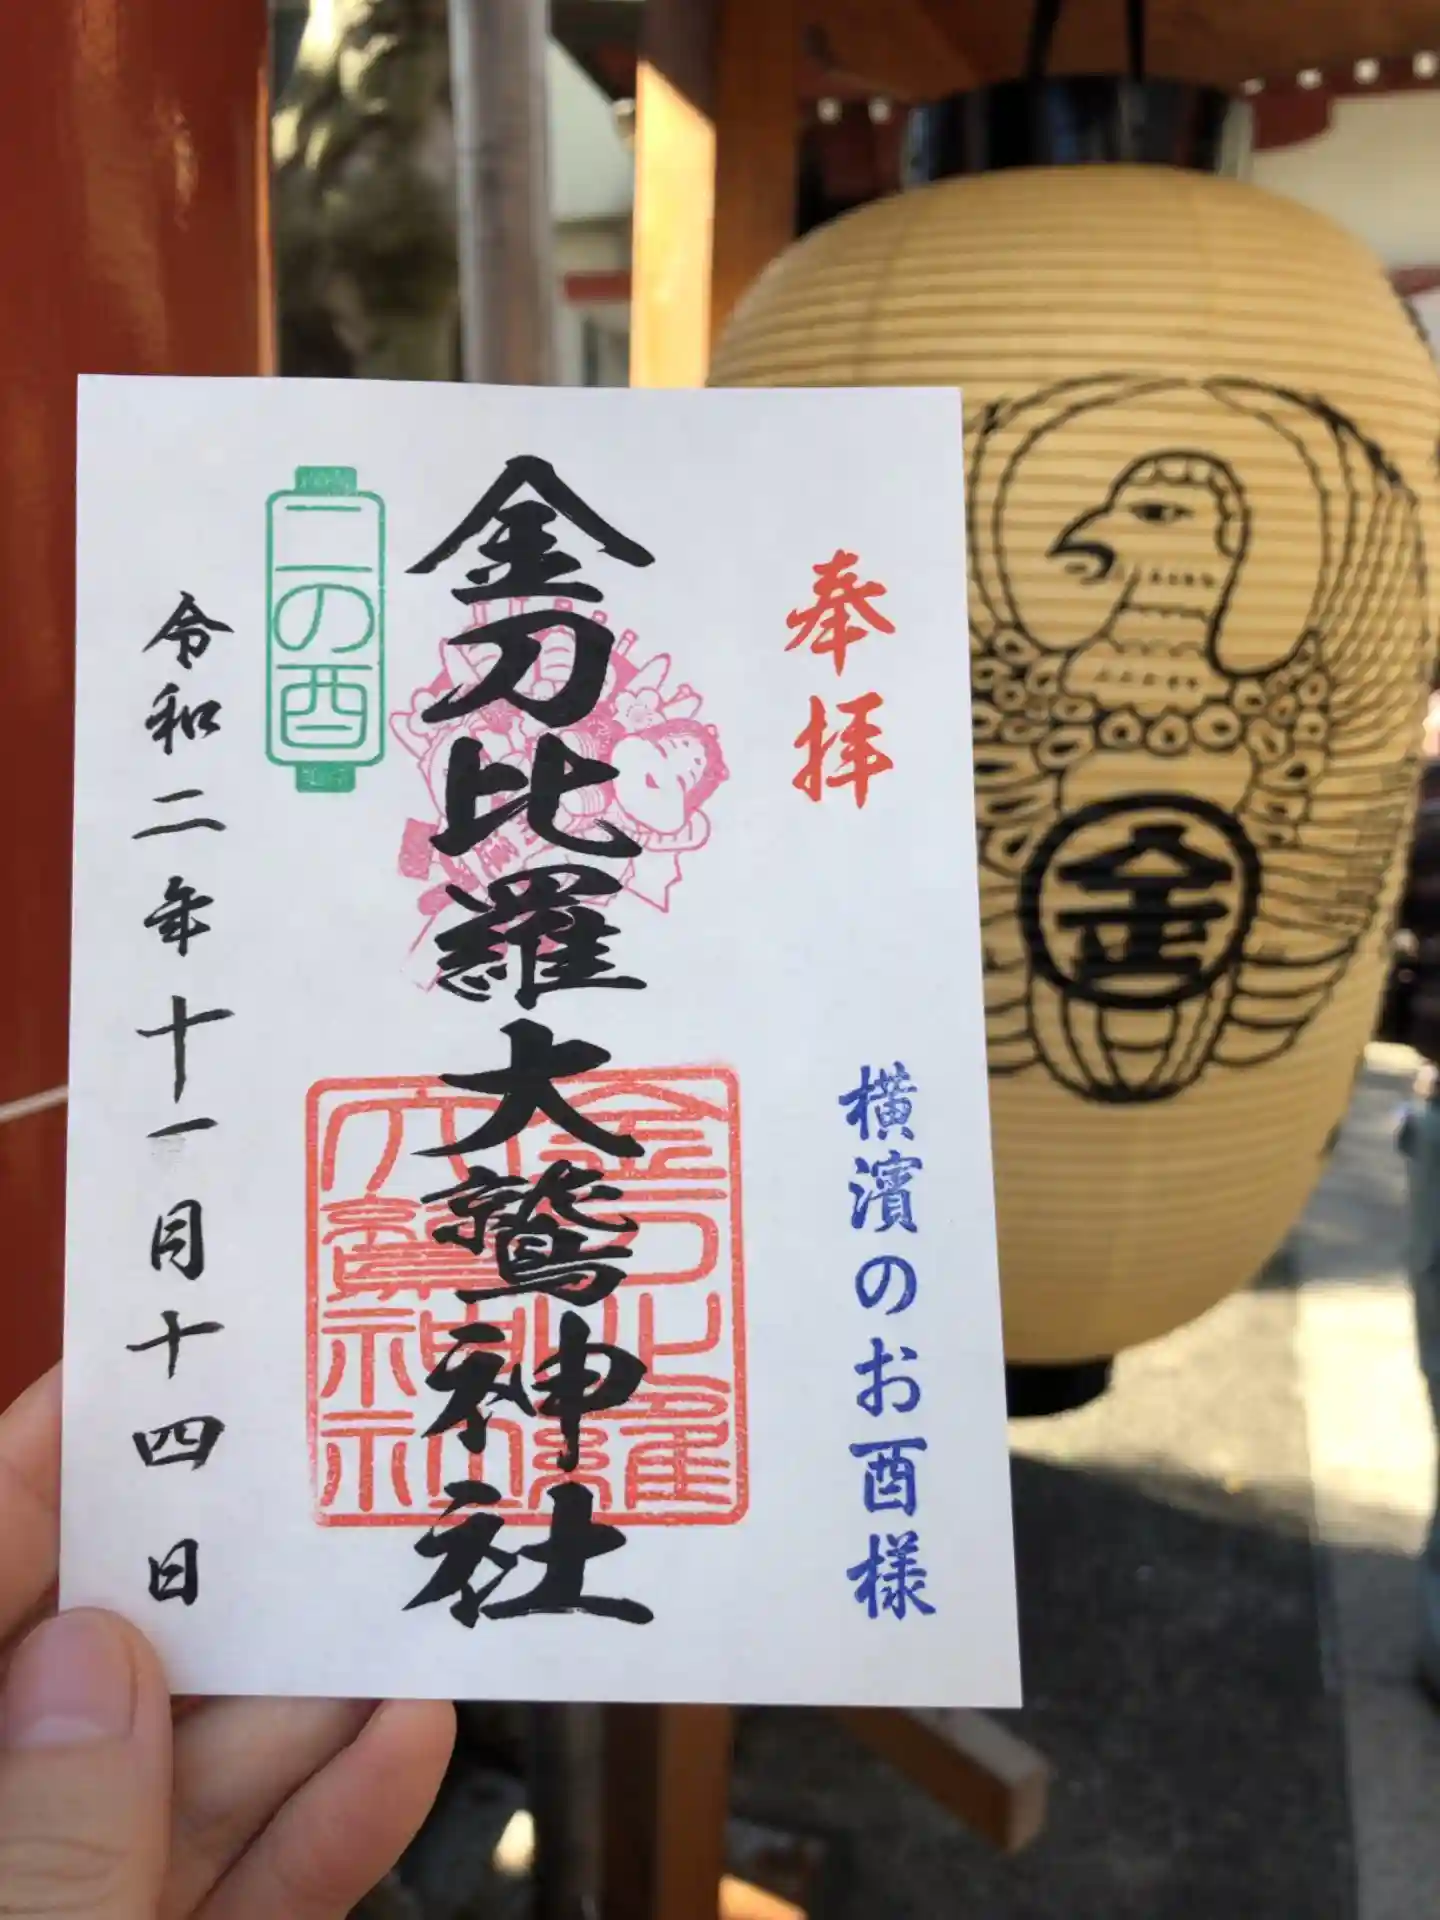 奉拝
横濱のお酉様
金刀比羅大鷲神社
二の酉
令和二年十一月十四日
金刀比羅
大鷲神社
金